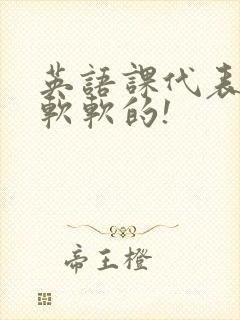 英語課代表
軟軟的!
帝王橙